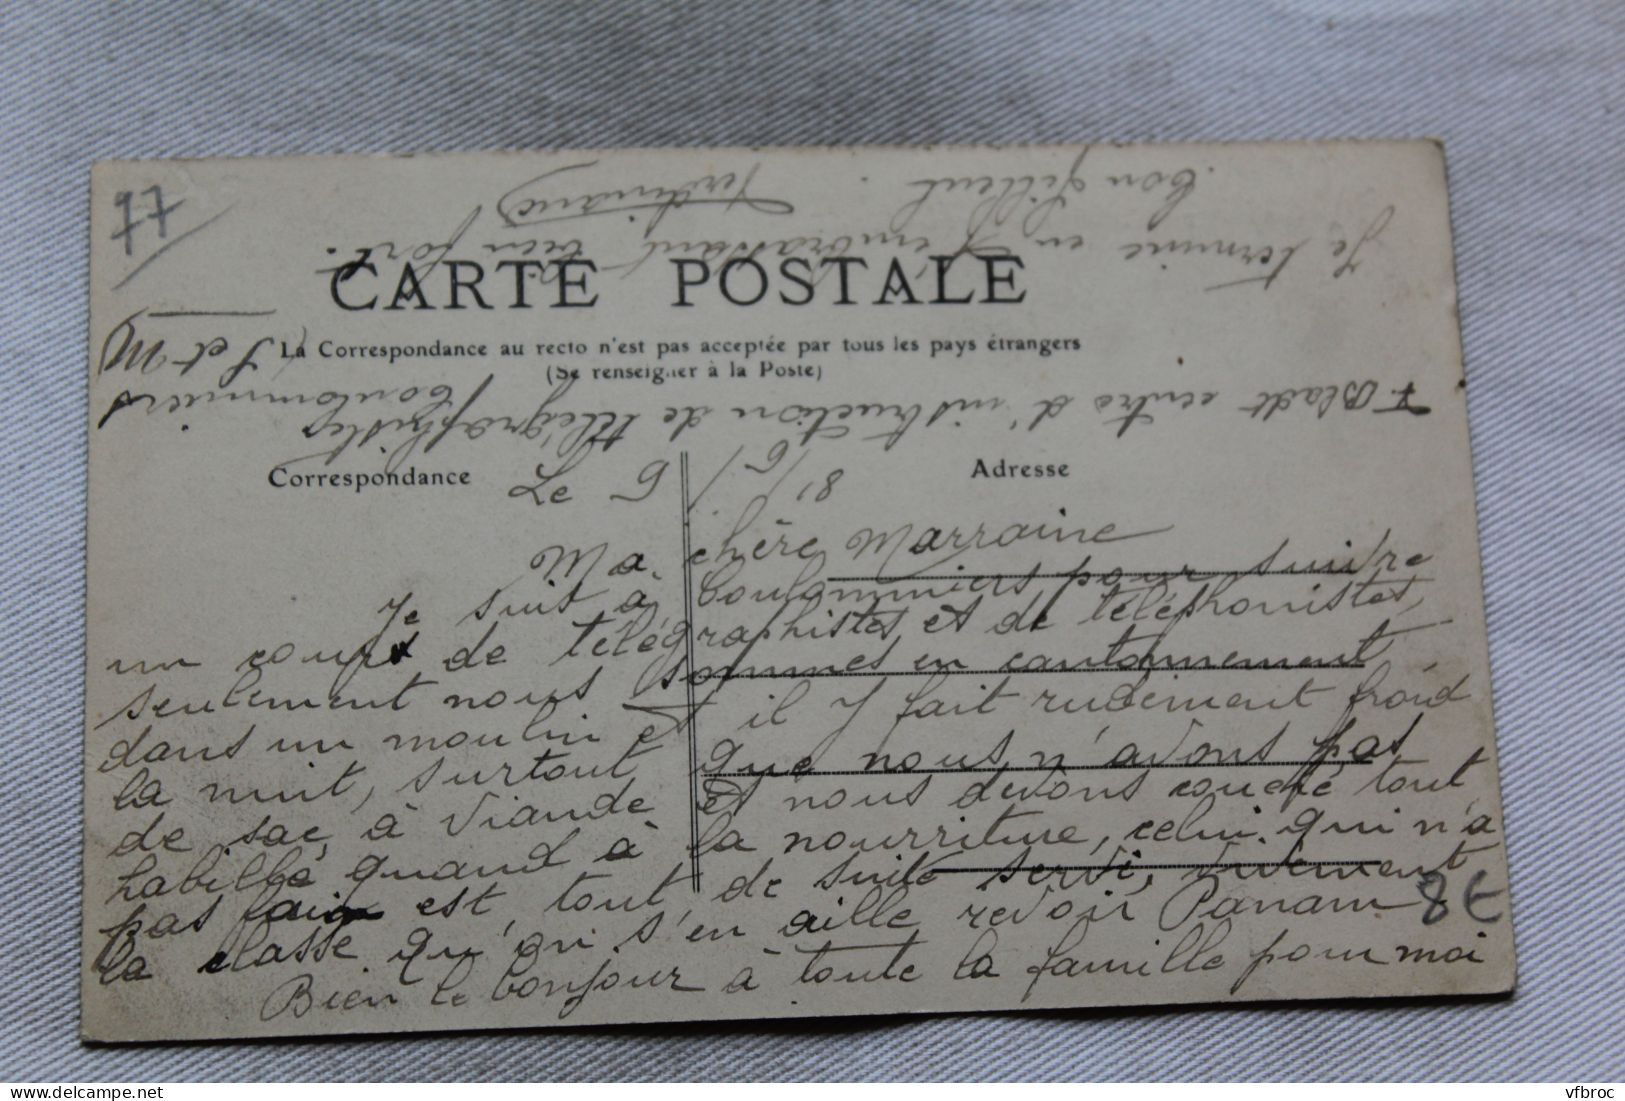 77
CARTE POSTALE
La Correspondance au recto n'est pas acceptée par tous les pays étrangers
(Se renseigner à la Poste)
Correspondance
Adresse
Le 9/6/18
Ma chère Marraine
Je suis à Coulommiers pour suivre
un cours de télégraphistes et de téléphonistes,
seulement nous sommes en cantonnement
dans un moulin et il y fait rudement froid
la nuit, surtout que nous n'avons pas
de sac à viande et nous devons couché tout
habillé quand à la nourriture, celui qui n'a
pas faim est tout de suite servi, vivement
la classe qu'on s'en aille revoir Panam
Bien le bonjour à toute la famille pour moi
8€
Je termine en t'embrassant bien fort.
Ton filleul.
Ferdinand
F. Bladt centre d'instruction de télégraphistes Coulommiers
S et M
vfbroc